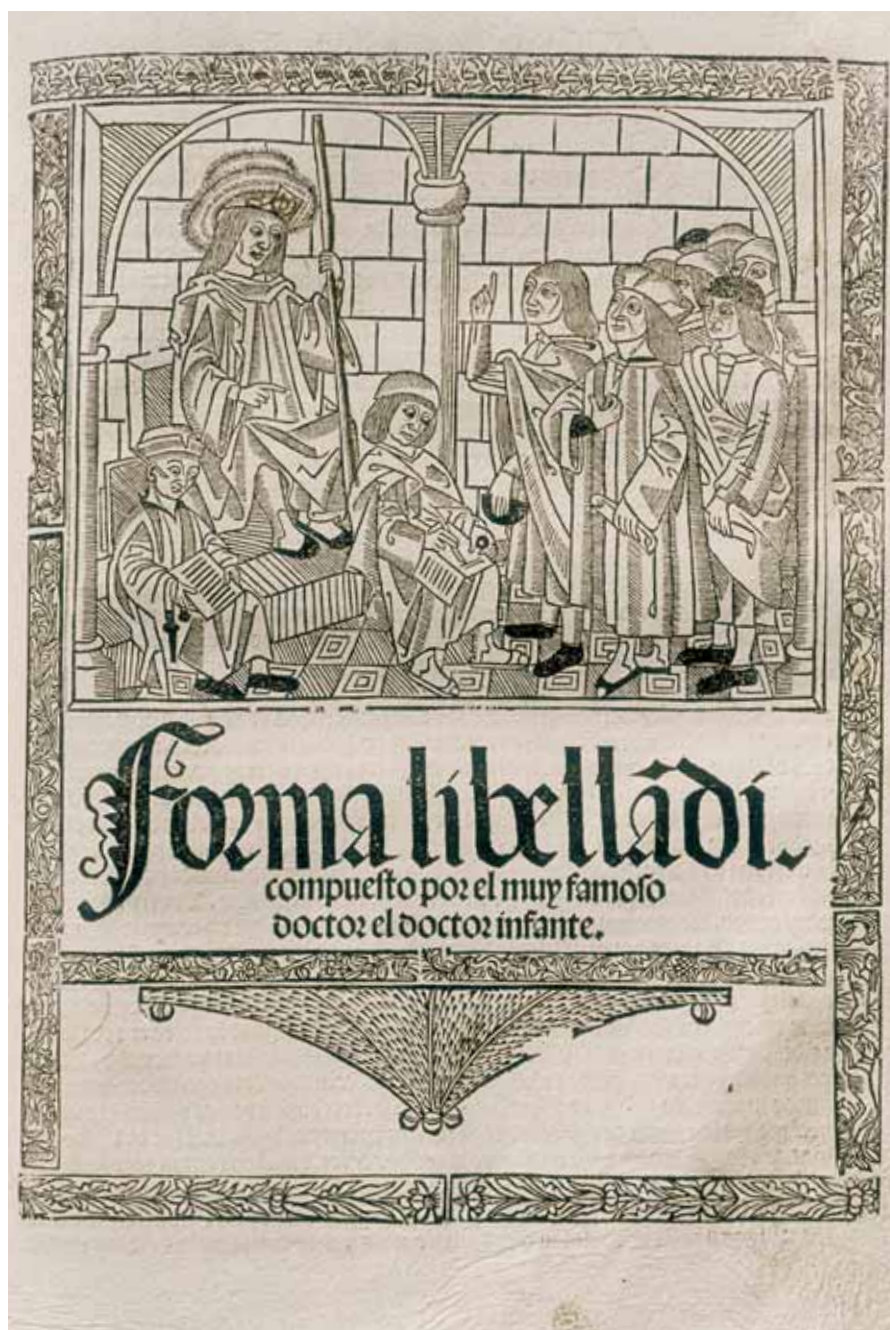 Forma libellãdi.
compuesto por el muy famoso
doctor el doctor infante.